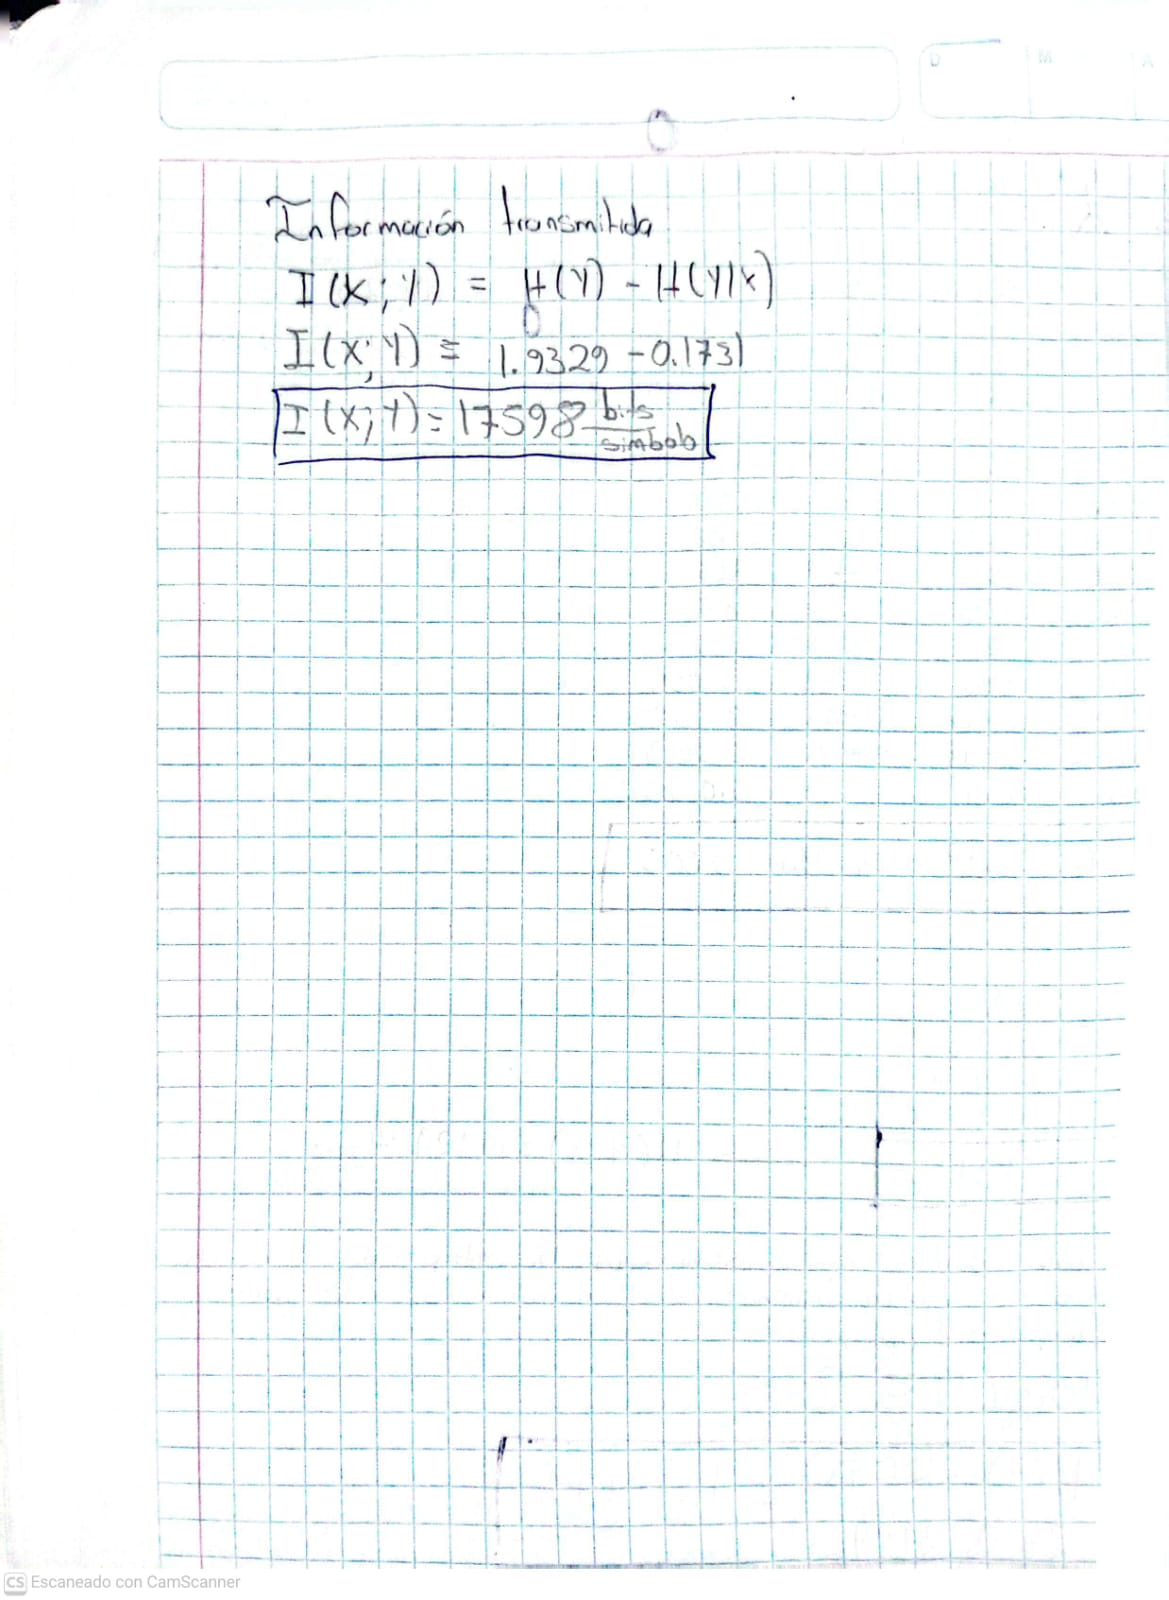 D M A
Información transmitida
I(X;Y) = H(Y) - H(Y|X)
I(X;Y) = 1.9329 - 0.1731
I(X;Y) = 17598 bits/simbolo
CS Escaneado con CamScanner